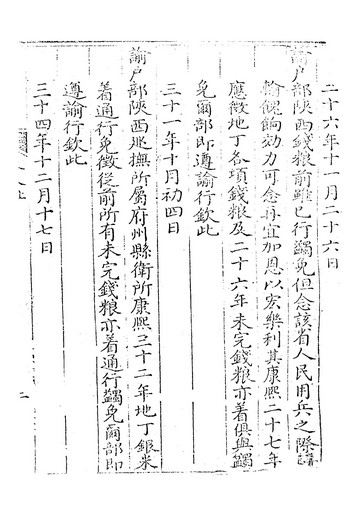 二十六年十一月二十六日
諭戶部陝西錢粮前雖已行蠲免但念該省人民用兵之際
輸輓餉効力可念再宜加恩以宏樂利其康熙二十七年
應徵地丁各項錢粮及二十六年未完錢粮亦著俱與蠲
免爾部即遵諭行欽此
三十一年十月初四日
諭戶部陝西巡撫所屬府州縣衛所康熙三十二年地丁銀米
着通行免徵從前所有未完錢粮亦着通行蠲免爾部即
遵諭行欽此
三十四年十二月十七日